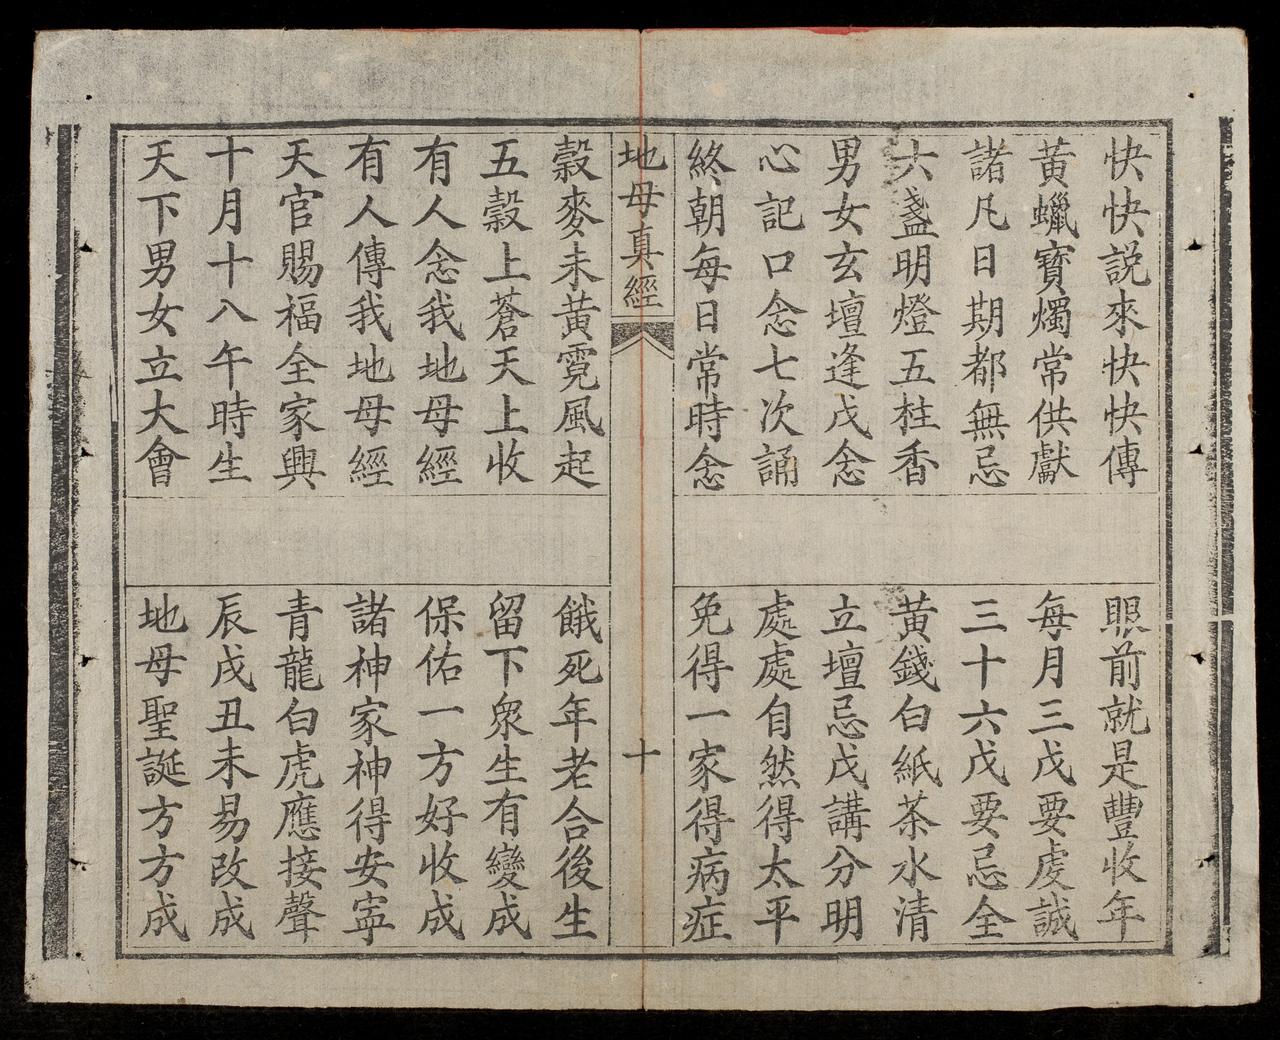 快快説來快快傳
眼前就是豐收年
黃蠟寶燭常供獻
每月三戊要虔誠
諸凡日期都無忌
三十六戊要忌全
六盞明燈五柱香
黃錢白紙茶水清
男女玄壇逢戊念
立壇忌戊講分明
心記口念七次誦
處處自然得太平
終朝每日常時念
免得一家得病症
地母真經
十
穀麥未黃霓風起
餓死年老合後生
五穀上蒼天上收
留下衆生有變成
有人念我地母經
保佑一方好收成
有人傳我地母經
諸神家神得安寍
天官賜福全家興
青龍白虎應接聲
十月十八午時生
辰戌丑未易改成
天下男女立大會
地母聖誕方方成